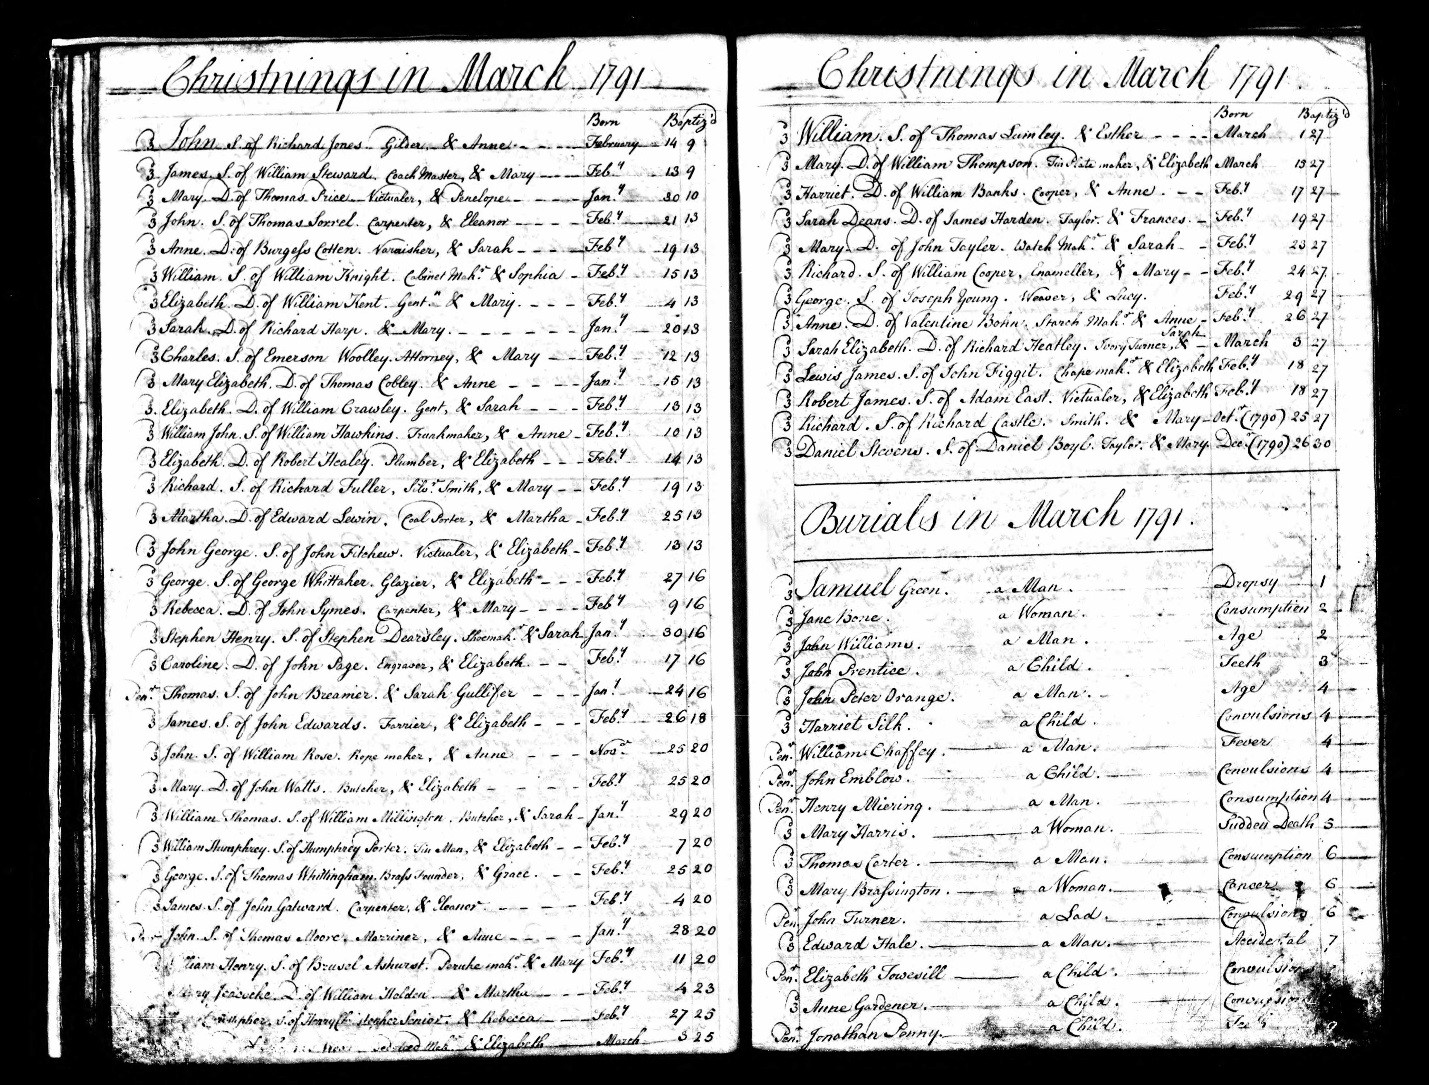 Christnings in March 1791
Born Baptiz'd
3 John S. of Richard Jones Gilder, & Anne - - - - February 14 9
3 James. S. of William Steward. Coach Master, & Mary - - - Feb.y 13 9
3 Mary. D. of Thomas Price Victualer, & Penelope - - - - Jan.y 30 10
3 John. S. of Thomas Sorrel Carpenter, & Eleanor - - - - Feb.y 21 13
3 Anne. D. of Burgess Cotten. Varnisher, & Sarah - - - - Feb.y 19 13
3 William. S. of William Knight. Cabinet Mak.r & Sophia - Feb.y 15 13
3 Elizabeth. D. of William Kent. Gent.n & Mary. - - - Feb.y 4 13
3 Sarah. D. of Richard Harp. & Mary. - - - - - - Jan.y 20 13
3 Charles. S. of Emerson Woolley. Attorney, & Mary - - Feb.y 12 13
3 Mary Elizabeth. D. of Thomas Cobley. & Anne - - - - Jan.y 15 13
3 Elizabeth. D. of William Crawley. Gent, & Sarah - - - Feb.y 13 13
3 William John. S. of William Hawkins. Trunkmaker, & Anne - Feb.y 10 13
3 Elizabeth. D. of Robert Healey. Plumber, & Elizabeth - - - Feb.y 14 13
3 Richard. S. of Richard Fuller, Silv.r Smith, & Mary - - Feb.y 19 13
3 Martha. D. of Edward Lewin. Coal Porter, & Martha - Feb.y 25 13
3 John George. S. of John Fitchew. Victualer, & Elizabeth - Feb.y 13 13
3 George. S. of George Whittaker. Glazier, & Elizabeth - - - Feb.y 27 16
3 Rebecca. D. of John Symes. Carpenter, & Mary - - - - Feb.y 9 16
3 Stephen Henry. S. of Stephen Dearsley. Shoemak.r & Sarah Jan.y 30 16
3 Caroline. D. of John Page. Engraver, & Elizabeth. - - Feb.y 17 16
Pen.t Thomas. S. of John Breamer. & Sarah Gullifer - - - Jan.y 24 16
3 James. S. of John Edwards. Farrier, & Elizabeth - - - Feb.y 26 18
3 John. S. of William Rose. Rope maker, & Anne Nov.r 25 20
3 Mary. D. of John Watts. Butcher, & Elizabeth - - - - Feb.y 25 20
3 William Thomas. S. of William Millington. Butcher, & Sarah - Jan.y 29 20
3 William Humphrey. S. of Humphrey Porter. Tin Man, & Elizabeth - - Feb.y 7 20
3 George. S. of Thomas Whittingham. Brass Founder, & Grace. - - Feb.y 25 20
3 James. S. of John Gatward. Carpenter, & Eleanor. - - - - Feb.y 4 20
John. S. of Thomas Moore. Marriner, & Anne - - - - Jan.y 28 20
liam Henry. S. of Ashurst. Peruke mak.r & Mary Feb.y 11 20
D. of William Holden & Martha - - - Feb.y 4 23
S. of Henry & Rebecca - - - Feb.y 27 25
Mak.r & Elizabeth March 3 25
Christnings in March 1791.
Born Baptiz'd
3 William. S. of Thomas Lumley. & Esther - - - - March 1 27
3 Mary. D. of William Thompson. Tin Plate maker, & Elizabeth March 13 27
3 Harriet. D. of William Banks. Cooper, & Anne. - - Feb.y 17 27
3 Sarah Deans. D. of James Harden. Taylor. & Frances. - Feb.y 19 27
3 Mary. D. of John Tayler. Watch Mak.r & Sarah - - Feb.y 23 27
3 Richard. S. of William Cooper, Enameller, & Mary - - Feb.y 24 27
3 George. S. of Joseph Young. Weaver, & Lucy. Feb.y 29 27
3 Anne. D. of Valentine Bohn. Starch Mak.r & Anne - Feb.y 26 27
Sarah
3 Sarah Elizabeth. D. of Richard Heatley. Ivory Turner, & - March 3 27
3 Lewis James. S. of John Figgit. Chape mak.r & Elizabeth Feb.y 18 27
3 Robert James. S. of Adam East. Victualer, & Elizabeth Feb.y 18 27
3 Richard. S. of Richard Castle. Smith. & Mary - Oct.r (1790) 25 27
3 Daniel Stevens. S. of Daniel Boyl. Taylor. & Mary Dec.r (1790) 26 30
Burials in March 1791.
3 Samuel Green. a Man. Dropsy 1
3 Jane Bone. a Woman. Consumption 2
3 John Williams. a Man. Age 2
3 John Prentice. a Child. Teeth 3
3 John Peter Orange. a Man. Age 4
3 Harriot Silk. a Child. Convulsions 4
Pen.t William Chaffey. a Man. Fever 4
Pen.t John Emblow. a Child. Convulsions 4
Pen.t Henry Miering. a Man. Consumption 4
3 Mary Harris. a Woman. Sudden Death 5
3 Thomas Carter. a Man. Consumption 6
3 Mary Brassington. a Woman. Cancer 6
Pen.t John Turner. a Lad. Convulsions 6
3 Edward Hale. a Man. Accidental 7
Pen.t Elizabeth Towesill a Child.
3 Anne Gardener. a Child.
Pen.t Jonathan Penny. a Child. 9